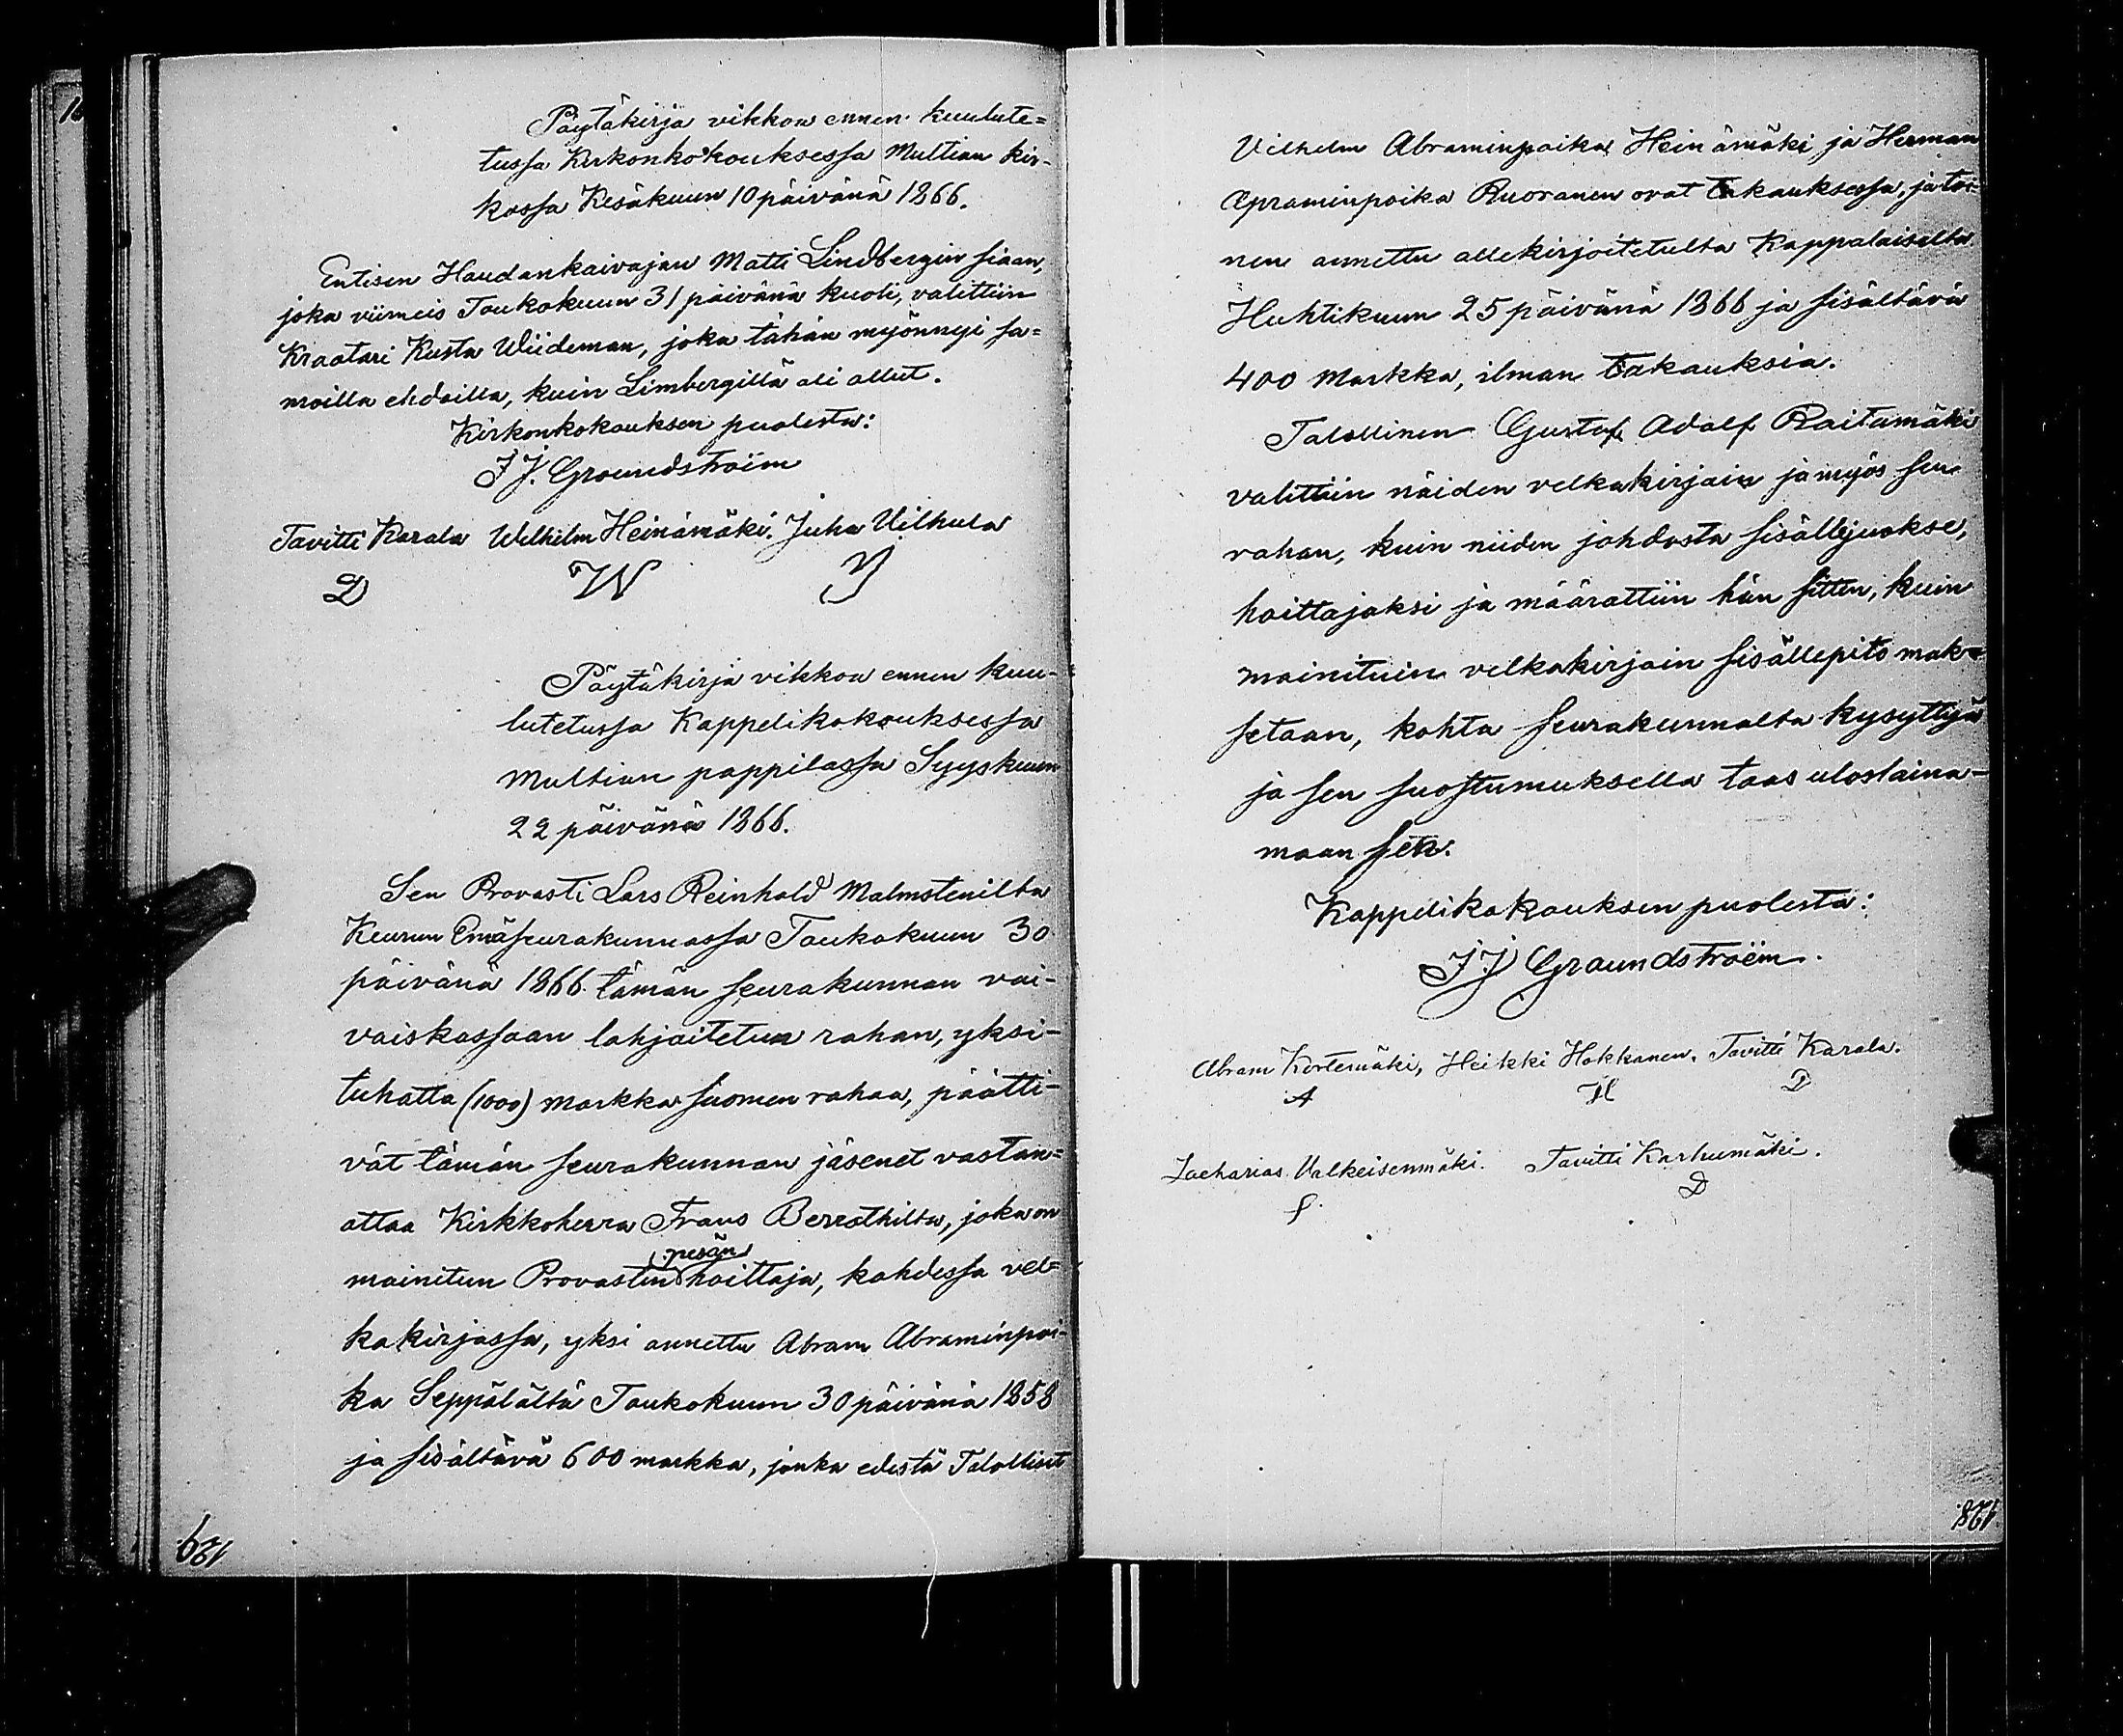 16
Pöytäkirja vikkoa ennen kuulute=
tussa Kirkonkokouksessa Multian kir-
kossa Kesäkuun 10 päivänä 1866.
Entisen Haudankaivajan Matti Lindbergin siaan,
joka viimeis Toukokuun 31 päivänä kuoli, valittiin
Kraatari Kusta Wiideman, joka tähän myönnyi sa=
moilla ehdoilla, kuin Limbergillä oli ollut.
Kirkonkokouksen puolesta:
J J. Groundstroëm
Tavitti Karala Wilhelm Heinämäki. Juha Vilhula
D W J
Pöytäkirja vikkoa ennen kuu-
lutetussa Kappelikokouksessa
Multian pappilassa Syyskuun
22 päivänä 1866.
Sen Provasti Lars Reinhold Malmstenilta
Keurun Emäseurakunnassa Toukokuun 30
päivänä 1866 tämän seurakunnan vai-
vaiskassaan lahjoitetun rahan, yksi-
tuhatta (1000) markkaa suomen rahaa, päätti-
vät tämän seurakunnan jäsenet vastan=
ottaa Kirkkoherra Frans Berrothilta, joka on
pesän
mainitun Provastin hoittaja, kahdessa vel=
kakirjassa, yksi annettu Abram Abraminpoi-
ka Seppälältä Toukokuun 30 päivänä 1858
ja sisältävä 600 markka, jonka edestä Talolliset
129
Vilhelm Abraminpoika Heinämäki ja Herman
Apraminpoika Ruoranen ovat takauksessa, ja toi-
nen annettu allekirjoitetulta Kappalaiselta
Huhtikuun 25 päivänä 1866 ja sisältävä
400 Markka, ilman takauksia.
Talollinen Gustaf Adolf Raitamäki
valittiin näiden velkakirjain ja myös sen
rahan, kuin niiden johdosta sisällejuokse,
hoittajaksi ja määrättiin hän sitten, kuin
mainituin velkakirjain sisällepito mak=
setaan, kohta seurakunnalta kysyttyä
ja sen suostumuksella taas uloslaina-
maan sen.
Kappelikokouksen puolesta:
J J Graundstroëm.
Abram Kortemäki, Heikki Hokkanen. Tavitti Karala.
A H D
Zacharias Valkeisenmäki. Tavitti Karhumäki.
S. D
128